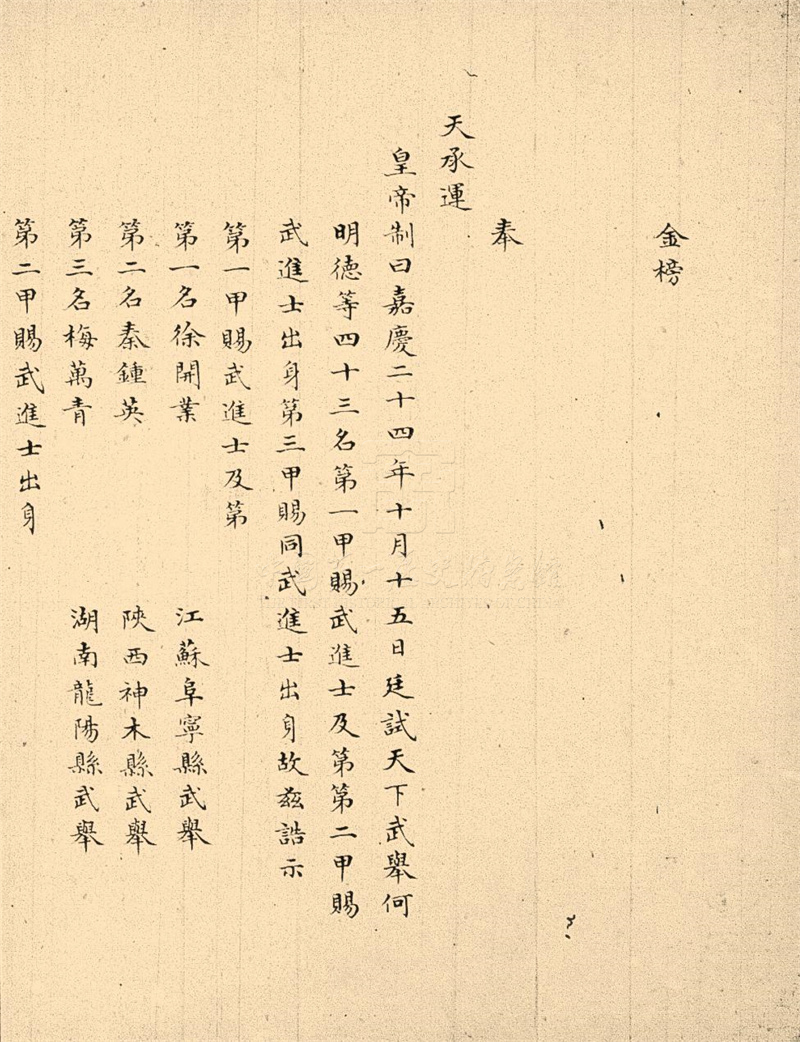 金榜
奉
天承運
皇帝制曰嘉慶二十四年十月十五日廷試天下武舉何
明德等四十三名第一甲賜武進士及第第二甲賜
武進士出身第三甲賜同武進士出身故茲誥示
第一甲賜武進士及第
第一名徐開業 江蘇阜寧縣武舉
第二名秦鍾英 陝西神木縣武舉
第三名梅萬青 湖南龍陽縣武舉
第二甲賜武進士出身